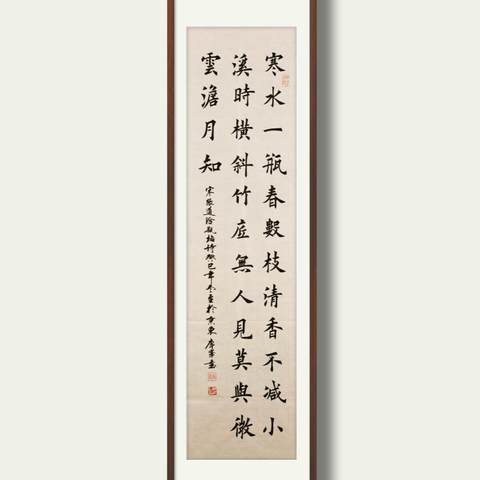 寒水一瓶春數枝清香不減小
溪時橫斜竹底無人見莫與微
雲澹月知
宋張道洽瓶梅詩癸巳年冬書於京東